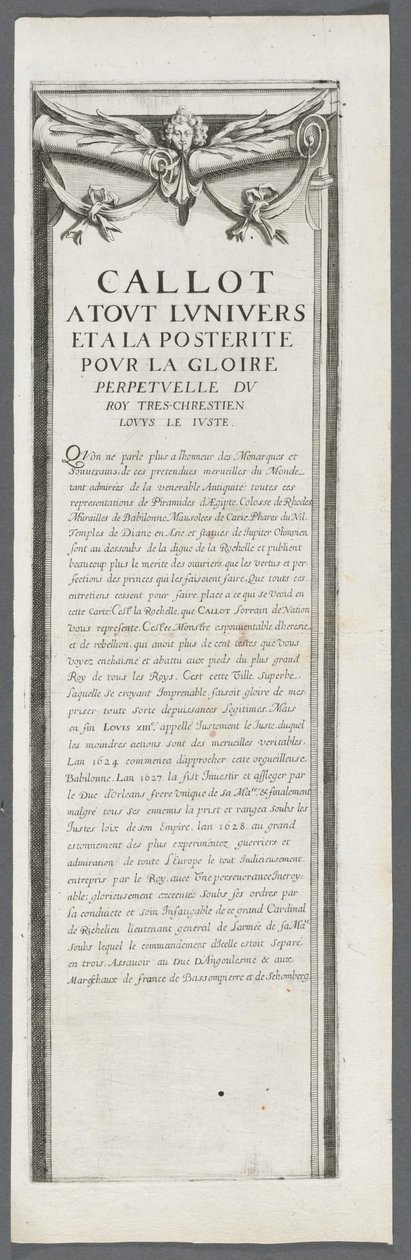 CALLOT
A TOVT LVNIVERS
ET A LA POSTERITE
POVR LA GLOIRE
PERPETVELLE DV
ROY TRES-CHRESTIEN
LOVYS LE IVSTE.
QVon ne parle plus a lhonneur des Monarques et
Souuerains, de ces pretendues merueilles du Monde
tant admirées de la venerable Antiquite: toutes ces
representations de Piramides dÆgipte. Colosse de Rhodes
Murailles de Babilonne, Mausolees de Carie. Phares du Nil.
Temples de Diane en Asie, et statues de Iupiter Olimpien
sont au dessoubs de la digue de la Rochelle et publient
beaucoup plus le merite des ouuriers, que les vertus et per-
fections des princes qui les faisoient faire, Que touts ces
entretiens cessent pour faire place a ce qui se veoid en
cette Carte: Cest la Rochelle, que CALLOT Lorrain de Nation
vous represente. Cest ce Monstre espouuentable dheresie
et de rebellion, qui auoit plus de cent testes que vous
voyez enchaisné et abattu aux pieds du plus grand
Roy de tous les Roys. Cest cette Ville Superbe,
Laquelle se croyant Imprenable faisoit gloire de mes
priser toute sorte de puissances Legitimes. Mais
en fin LOVIS XIIIe. appellé Iustement le Iuste, duquel
les moindres actions sont des merueilles veritables.
Lan 1624 commenca dapprocher cette orgueilleuse
Babilonne. Lan 1627. la fist Inuestir et assieger par
le Duc dOrleans frere vnique de sa Mate. & finalement
malgré tous ses ennemis la prist et rangea soubs les
Iustes loix de son Empire. lan 1628. au grand
estonnement des plus experimentez guerriers et
admiration de toute l'Europe le tout Iudicieusement
entrepris par le Roy, auec Vne perseuerance Incroy-
able; glorieusement executée Soubs ses ordres par
La conduicte et soin Infatigable de ce grand Cardinal
de Richelieu lieutenant general de Larmée de sa Maté
soubs lequel le commandement dIcelle estoit Separé
en trois. Assauoir au Duc DAngoulesme & aux
Mareschaux de france de Bassompierre et de Schomberg.